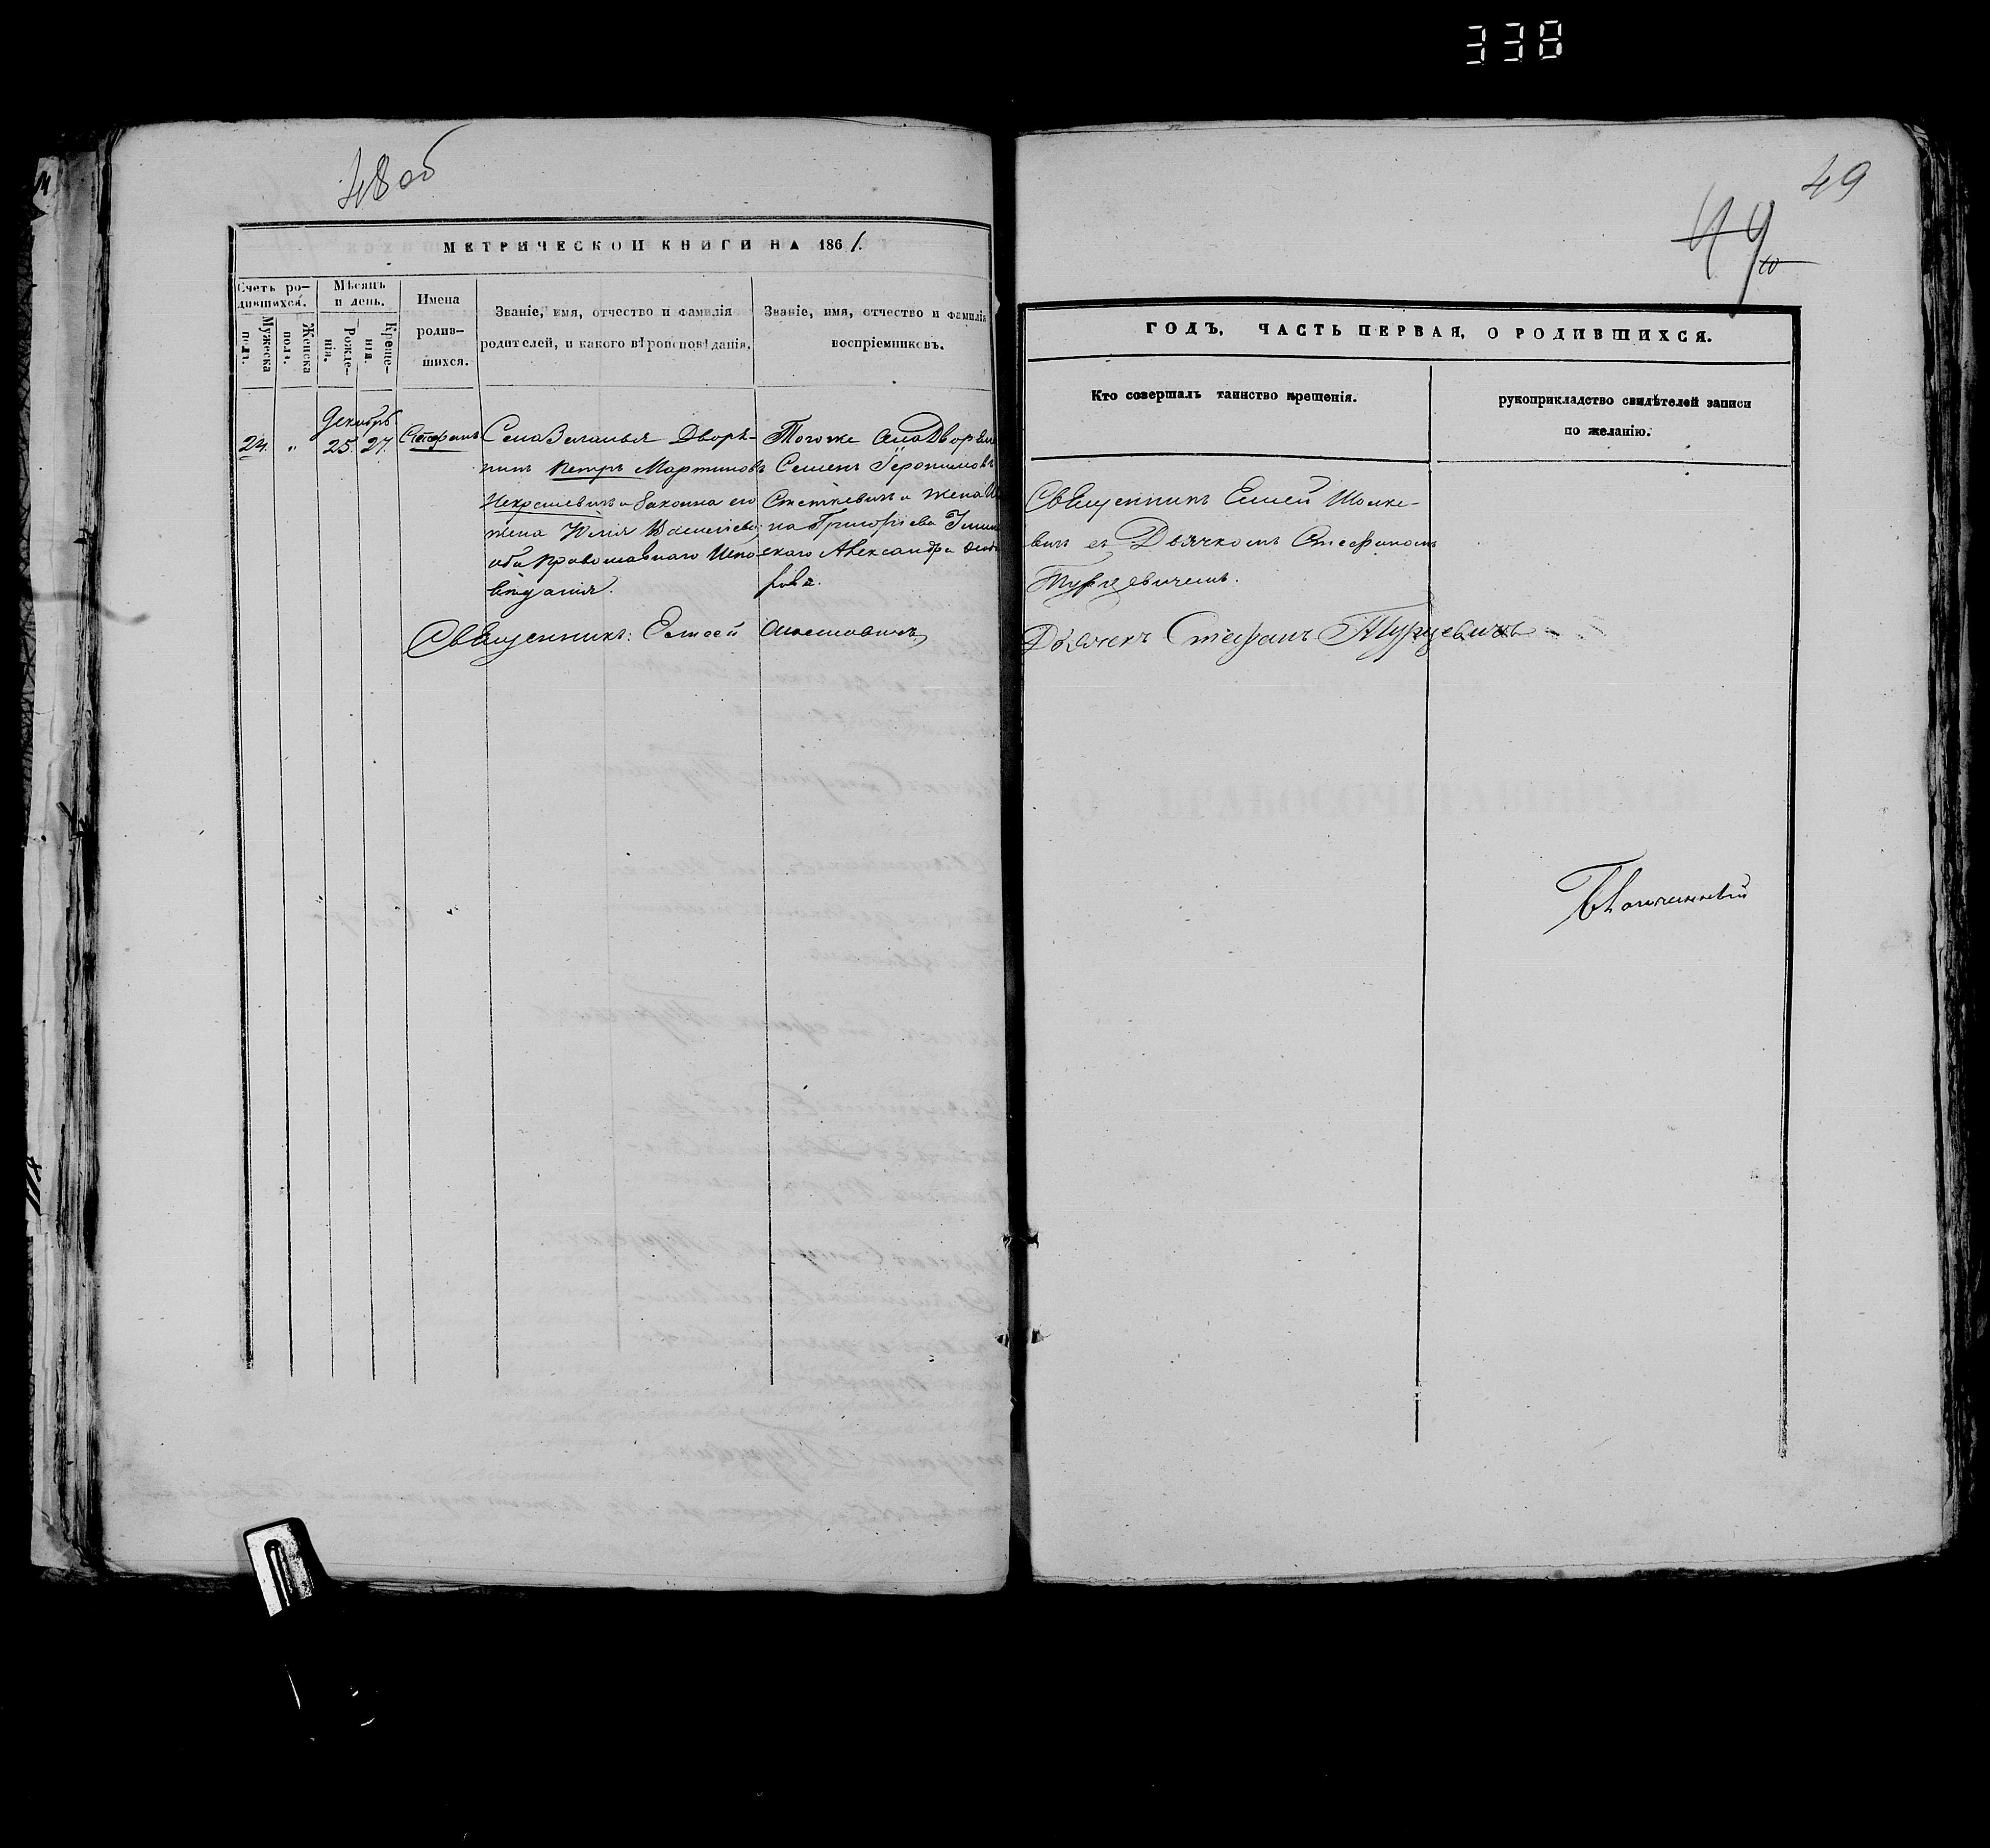 338
48 об
49
МЕТРИЧЕСКОЙ КНИГИ НА 1861.
Счетъ ро-
дившихся.
Мужеска
полъ.
Женска
полъ.
Мѣсяцъ
и день.
Рожде-
нія.
Креще-
нія.
Имена
родив-
шихся.
Званіе, имя, отчество и Фамилія
родителей, и какого вѣроисповѣданія.
Званіе, имя, отчество и Фамилія
воспріемниковъ.
Декабрь
24. „ 25. 27. Стефанъ
Села Дворя-
нинъ Петръ Мартиновъ
Некрашевичъ и Законна его
жена Юлія Василіева
оба Православнаго Испо-
вѣданія.
Тогоже Села Дворянинъ
Семенъ Іеронимовъ
Стеткевичъ и жена
на Григоріева
скаго Александра Ѳеодо
рова.
Священникъ: Елисей
ГОДЪ, ЧАСТЬ ПЕРВАЯ, О РОДИВШИХСЯ.
Кто совершалъ таинство крещенія.
рукоприкладство свидѣтелей записи
по желанію.
Священникъ Елисей
вичъ съ Дьячкомъ Стефаномъ
Турцевичемъ.
Дьячекъ Стефанъ Турцевичъ